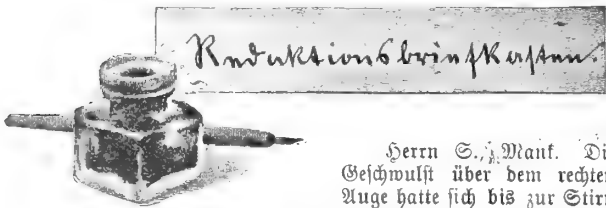 Redaktionsbriefkasten.
Herrn S., Mank. Di
Geschwulst über dem rechten
Auge hatte sich bis zur Stirn